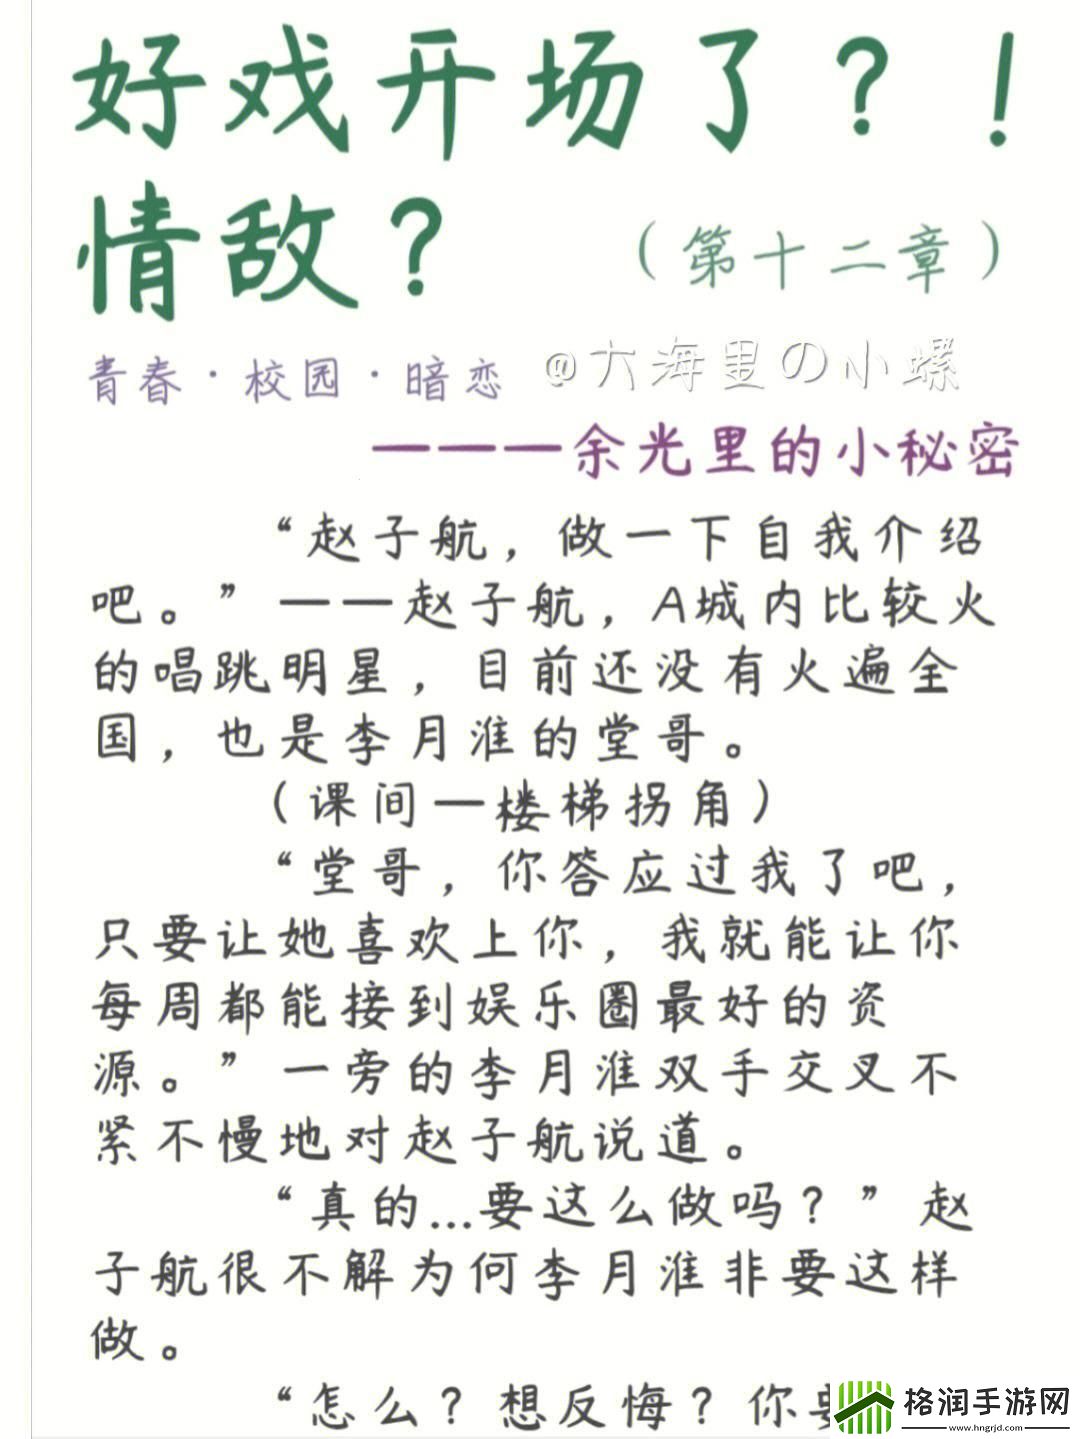 好戏开场了？！
情敌？（第十二章）
青春·校园·暗恋 @六海里の小螺
———余光里的小秘密
“赵子航，做一下自我介绍
吧。”——赵子航，A城内比较火
的唱跳明星，目前还没有火遍全
国，也是李月淮的堂哥。
（课间—楼梯拐角）
“堂哥，你答应过我了吧，
只要让她喜欢上你，我就能让你
每周都能接到娱乐圈最好的资
源。”一旁的李月淮双手交叉不
紧不慢地对赵子航说道。
“真的...要这么做吗？”赵
子航很不解为何李月淮非要这样
做。
“怎么？想反悔？你
格润手游网
www.hngrjd.com